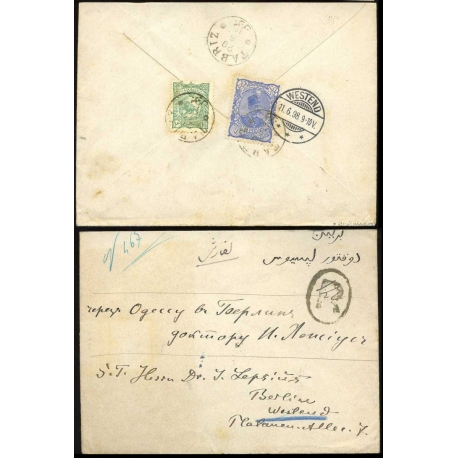 TABRIZ
WESTEND
11.6.98 9-10V.
№ 467
برلین
دوقتور لپسیوس
سفارشی
черезъ Одессу въ Берлинъ
доктору И. Лепсіусъ
S.T. Herrn Dr. J. Lepsius
Berlin
Westend
Platanen-Allee 7.